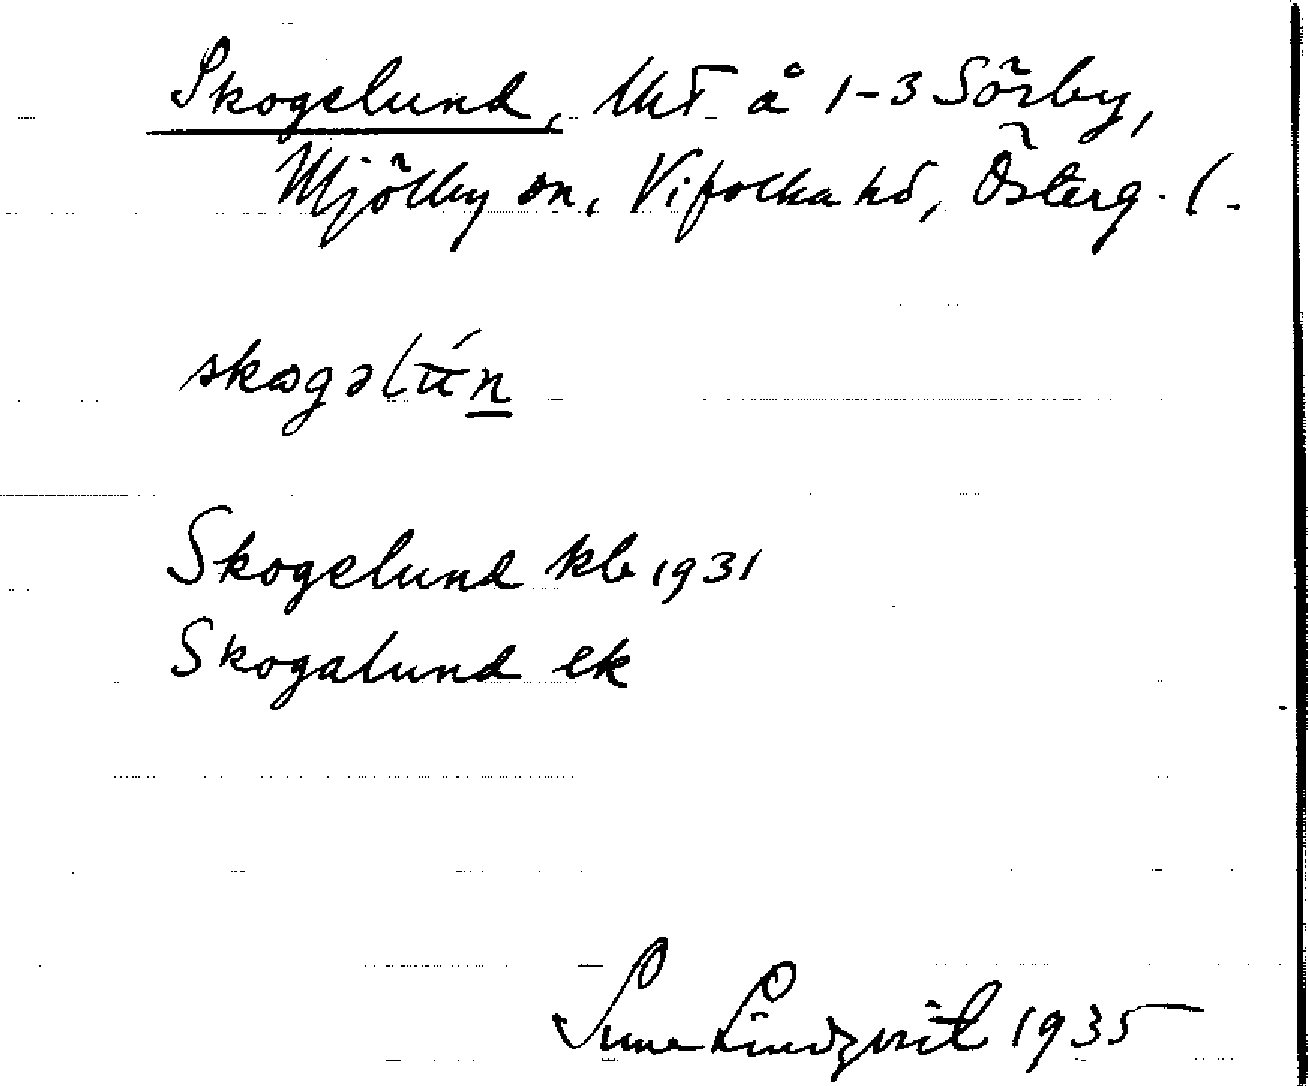 Skogslund, lht å 1-3 Sörby,
Mjölby sn, Vifolka hd, Österg. l.
skogəlún
Skogslund kb 1931
Skogalund ek
Sune Lindqvist 1935